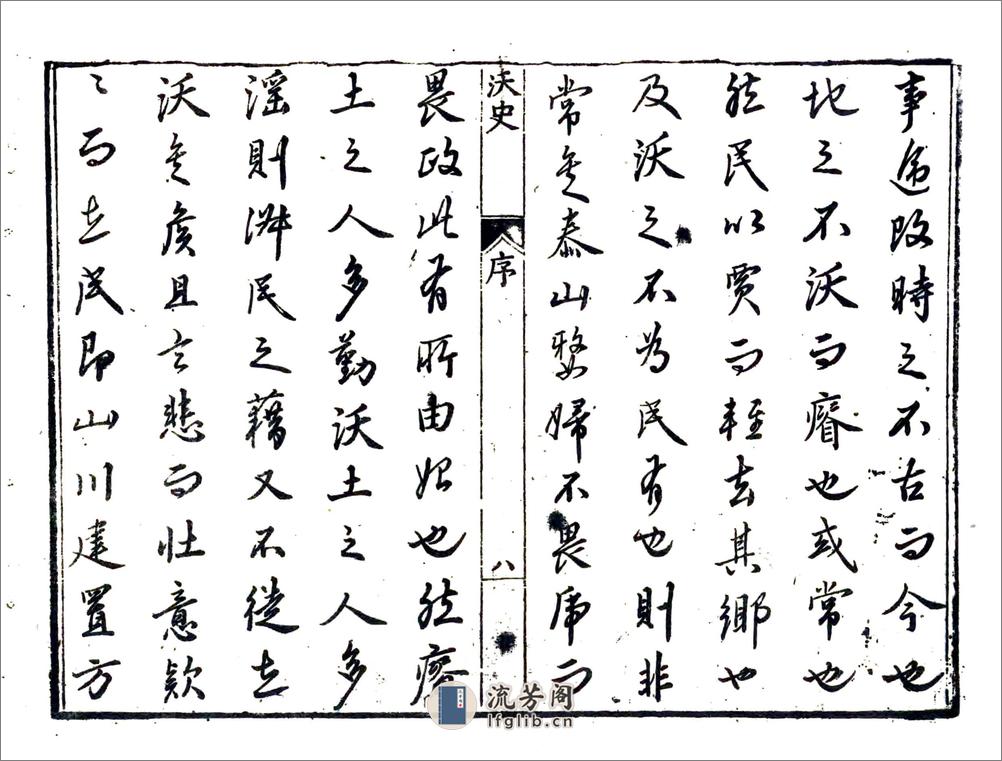 事遞改時之不古而今也
地之不沃而瘠也或常也
然民以賈而輕去其鄉也
及沃之不為民有也則非
常矣泰山嫠婦不畏虎而
沃史
序
八
畏政此有所由始也然瘠
土之人多勤沃土之人多
淫則民之藉又不徒在
沃矣侯且言悲而壯意款
々而在民即山川建置方
流芳阁
lfglib.cn